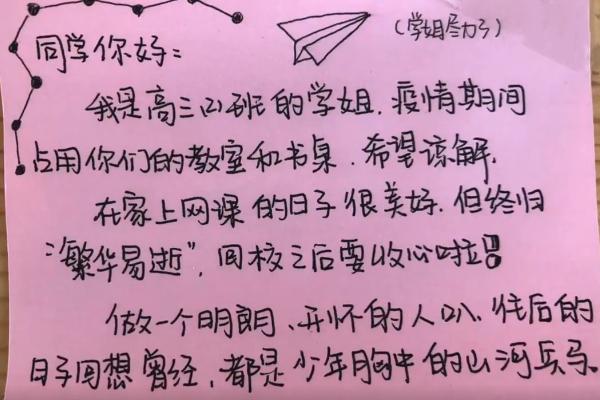 (学姐尽力了)
同学你好:
我是高三(2)班的学姐.疫情期间
占用你们的教室和书桌.希望谅解.
在家上网课的日子很美好.但终归
"繁华易逝",回校之后要收心啦!!
做一个明朗、开怀的人叭.往后的
日子回想曾经,都是少年胸中的山河兵马。